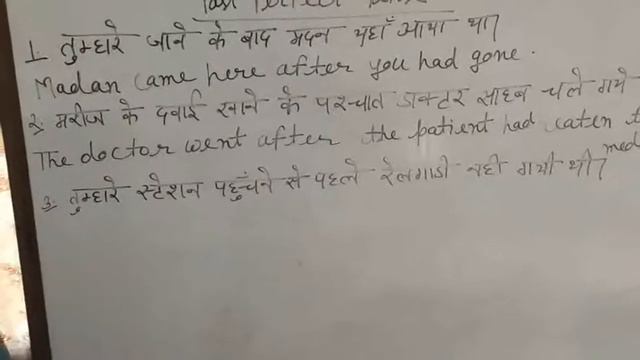 Past Perfect Tense
1. तुम्हारे जाने के बाद मदन यहाँ आया था।
Madan came here after you had gone.
2. मरीज के दवाई खाने के पश्चात डाक्टर साहब चले गये
The doctor went after the patient had eaten
med
3. तुम्हारे स्टेशन पहुँचने से पहले रेलगाडी नही गयी थी।